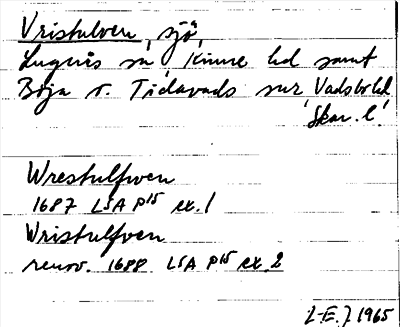 Vristulven, sjö,
Lugnås sn, Kinne hd samt
Böja o. Tidavads snr Vadsbo hd
Skar. l.
Wrestulfwen
1687 LSA P15 ex. 1
Wristulfven
renov. 1688 LSA P15 ex. 2
L-E. J 1965